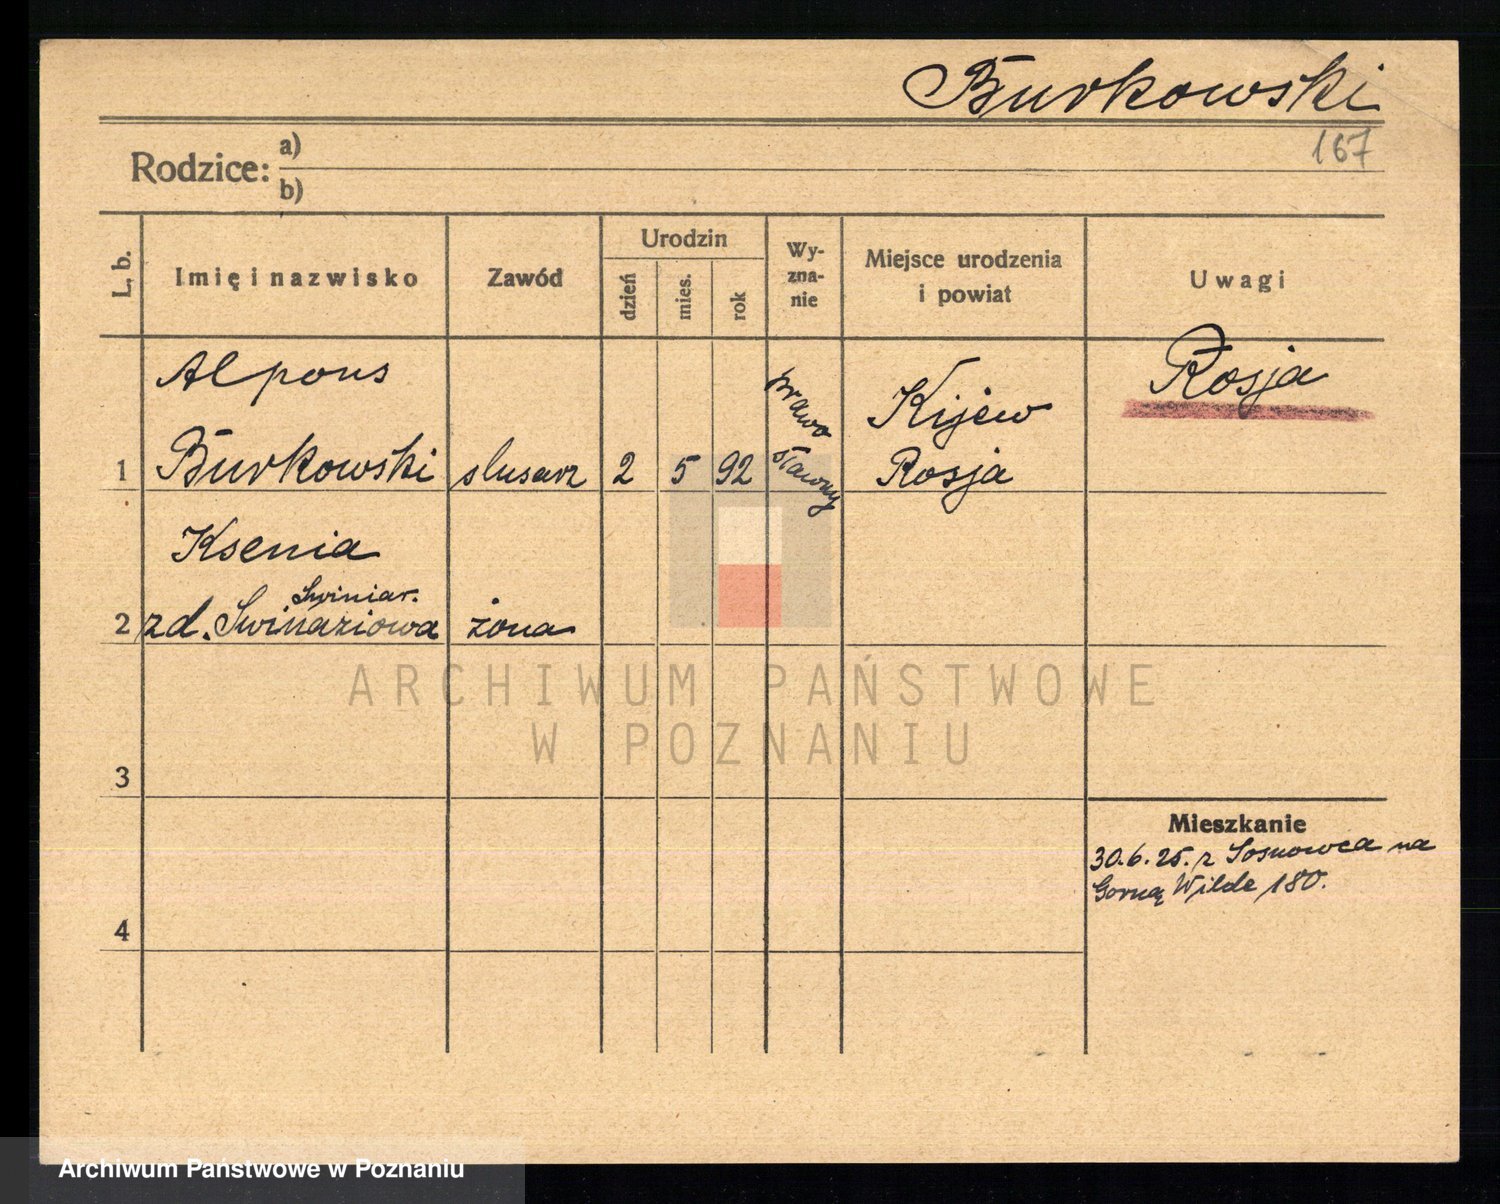 Burkowski
167
Rodzice: a)
b)
L. b.
Imię i nazwisko
Zawód
Urodzin
dzień
mies.
rok
Wy-
zna-
nie
Miejsce urodzenia
i powiat
Uwagi
Alpons
Burkowski
1
slusarz
2
5
92
prawo
sławny
Kijew
Rosja
Rosja
Ksenia
Swiniar.
2
zd. Swinaziowa
żona
ARCHIWUM PAŃSTWOWE
W POZNANIU
3
Mieszkanie
30.6.25. z Sosnowca na
Gorną Wilde 180.
4
Archiwum Państwowe w Poznaniu